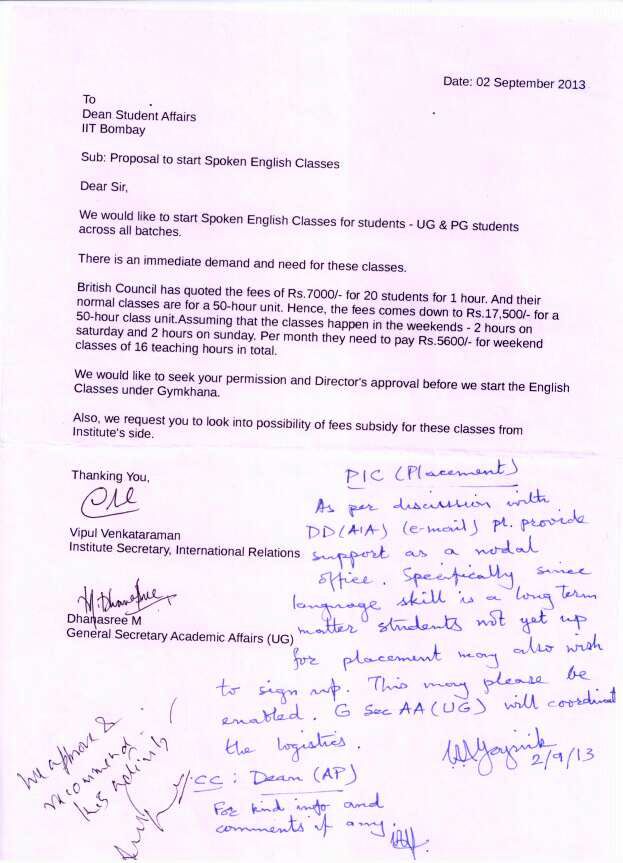 Date: 02 September 2013
To
Dean Student Affairs
IIT Bombay
Sub: Proposal to start Spoken English Classes
Dear Sir,
We would like to start Spoken English Classes for students - UG & PG students
across all batches.
There is an immediate demand and need for these classes.
British Council has quoted the fees of Rs.7000/- for 20 students for 1 hour. And their
normal classes are for a 50-hour unit. Hence, the fees comes down to Rs.17,500/- for a
50-hour class unit.Assuming that the classes happen in the weekends - 2 hours on
saturday and 2 hours on sunday. Per month they need to pay Rs.5600/- for weekend
classes of 16 teaching hours in total.
We would like to seek your permission and Director's approval before we start the English
Classes under Gymkhana.
Also, we request you to look into possibility of fees subsidy for these classes from
Institute's side.
Thanking You,
Vipul Venkataraman
Institute Secretary, International Relations
M. Dhanasree
Dhanasree M
General Secretary Academic Affairs (UG)
PIC (Placement)
As per discussion with
DD(AIA) (e-mail) pl. provide
support as a nodal
office. Specifically since
language skill is a long term
matter students not yet up
for placement may also wish
to sign up. This may please be
enabled. G Sec AA(UG) will coordinate
the logistics.
2/9/13
CC: Dean (AP)
For kind info and
comments if any.
We approve &
recommend
this activity